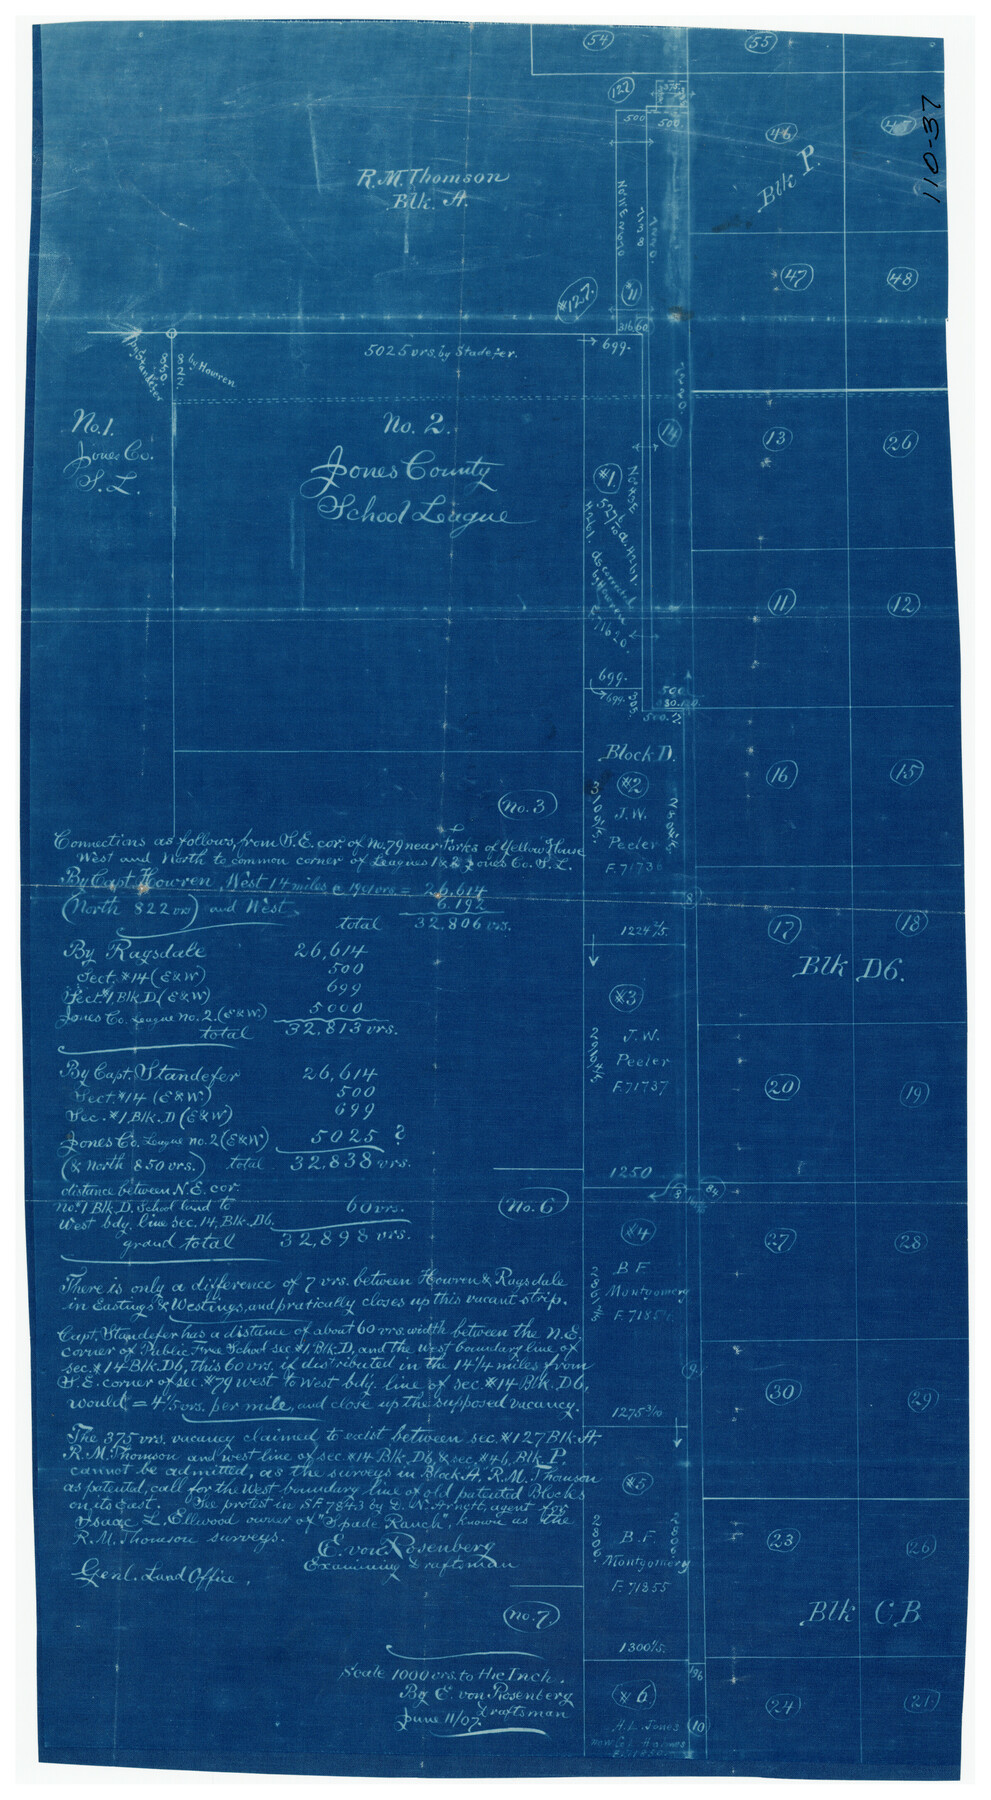 54
55
127
375
500
500.
46
45
110-37
Blk P.
R.M. Thomson
Blk. A.
47
48
#127.
#11
316.60
699.
5025 vrs. by Standefer.
by Standefer
850
822
by Howren
No. 1.
Jones Co.
S. L.
No. 2.
Jones County
School League
14
13
26
#1.
4261.
4261.
as corrected
by Howren
11
12
699.
699.
303.
500
500.
Block D.
#2
J.W.
Peeler
F. 71736
16
15
No. 3
Connections as follows, from S.E. cor. of No. 79 near Forks of Yellow House
West and North to common corner of Leagues 1 & 2 Jones Co. S. L.
By Capt. Howren, West 14 miles @ 1901 vrs = 26,614
(North 822 vrs) and West, 6,192
total 32,806 vrs.
1224 4/5.
17
18
Blk D6.
By Ragsdale 26,614
Sect. #14 (E&W) 500
Sect. #1, Blk. D, (E&W) 699
Jones Co. League no. 2. (E&W.) 5000
total 32,813 vrs.
#3
J. W.
Peeler
F. 71737
20
19
By Capt. Standefer 26,614
Sect. #14 (E&W) 500
Sec. #1, Blk. D (E&W) 699
Jones Co. League no. 2 (E&W) 5025 ?
(& North 850 vrs.) total 32,838 vrs.
1250
84
distance between N.E. cor.
no. 1 Blk. D. School land to 60 vrs.
West bdy. line sec. 14, Blk. D6.
grand total 32,898 vrs.
No. 6
#4
B F
Montgomery
27
28
There is only a difference of 7 vrs. between Howren & Ragsdale
in Eastings & Westings, and pratically closes up this vacant strip.
Capt. Standefer has a distance of about 60 vrs. width between the N.E.
corner of Public Free School sec #1, Blk. D, and the west boundary line of
sec. #14 Blk. D6, this 60 vrs. if distributed in the 14 1/4 miles from
S.E. corner of sec. #79 west to West bdy. line of sec. #14 Blk. D6,
would = 4 1/5 vrs. per mile, and close up the supposed vacancy.
30
29
1275 3/10
The 375 vrs. vacancy claimed to exist between sec. #127 Blk. A,
R.M. Thomson and west line of sec. #14 Blk. D6, & sec. #46, Blk P.
cannot be admitted, as the surveys in Block A. R. M. Thomson
as patented, call for the West boundary line of old patented Blocks
on its East. See protest in S.F. 7843 by D. N. Arnett, agent for
Isaac L. Ellwood owner of "Spade Ranch", known as the
R. M. Thomson surveys.
E. von Rosenberg
Examining Draftsman
Genl. Land Office,
#5
B. F.
Montgomery
F. 71855
2806.
2806
23
26
Blk C.B.
No. 7
1300 4/5.
Scale 1000 vrs. to the Inch.
By E. von Rosenberg
Draftsman
June 11/07.
#6
A. L. Jones
96
10
24
21